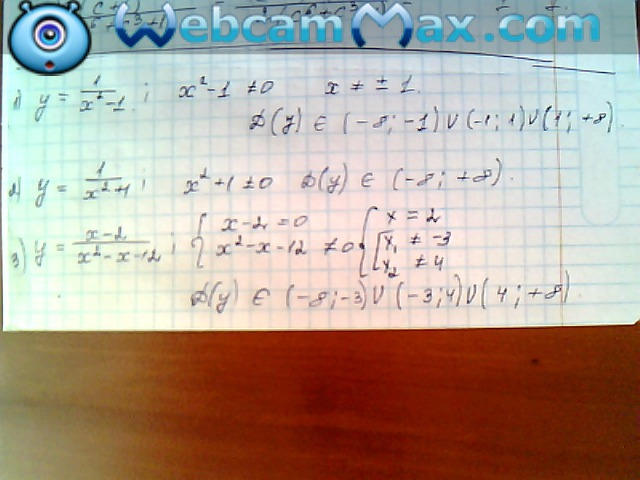 WebcamMax.com
1) y = 1/(x²-1) ; x²-1 ≠0 x ≠ ± 1.
D(y) ∈ (-8; -1) U (-1; 1) U (1; +8).
2) y = 1/(x²+1) ; x²+1 ≠0 D(y) ∈ (-8; +8).
3) y = (x-2)/(x²-x-12) ; { x-2 =0 { x = 2
x²-x-12 ≠0 [ x₁ ≠ -3
x₂ ≠ 4
D(y) ∈ (-8; -3) U (-3; 4) U (4; +8)